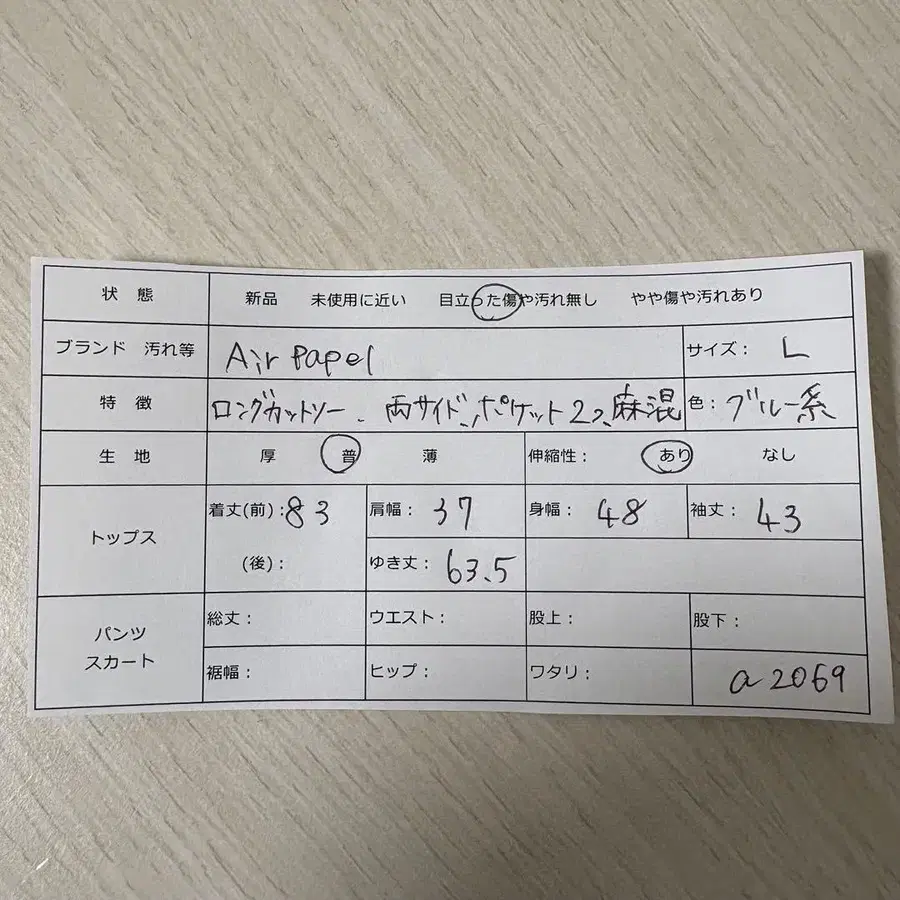 状 態 新品 未使用に近い 目立った傷や汚れ無し やや傷や汚れあり
ブランド 汚れ等 Air papel サイズ: L
特 徴 ロングカットソー、両サイド、ポケット2つ、麻混 色: ブルー系
生 地 厚 普 薄 伸縮性: あり なし
トップス 着丈(前): 83 肩幅: 37 身幅: 48 袖丈: 43
(後): ゆき丈: 63.5
パンツ スカート 総丈: ウエスト: 股上: 股下:
裾幅: ヒップ: ワタリ: a2069